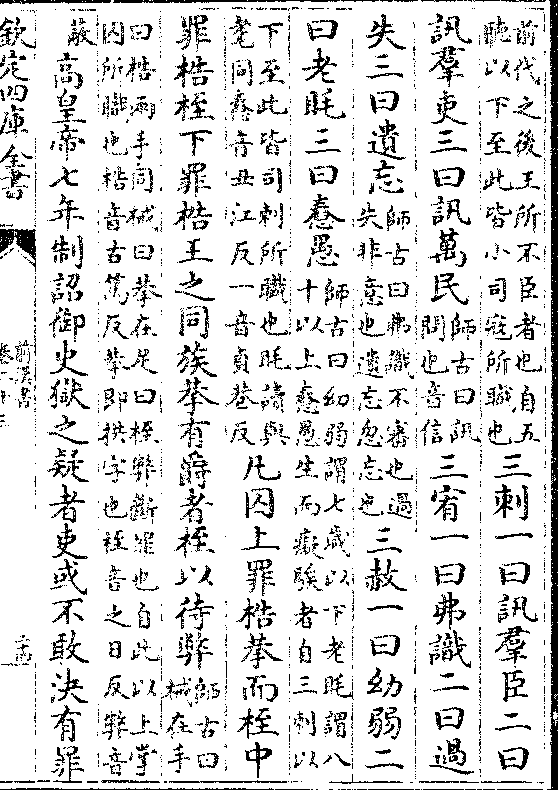 前代之後王所不臣者也自五
聽以下至此皆小司寇所職也
三刺一曰訊羣臣二曰
訊羣吏三曰訊萬民
師古曰訊
問也音信
三宥一曰弗識二曰過
失三曰遺忘
師古曰弗識不審也過
失非意也遺忘忽忘也
三赦一曰幼弱二
曰老眊三曰惷愚
師古曰幼弱謂七歲以下老眊謂八
十以上惷愚生而癡騃者自三刺以
下至此皆司刺所職也眊讀與
耄同惷音丑江反一音貞巷反
凡囚上罪梏拲而桎中
罪梏桎下罪梏王之同族拲有爵者桎以待弊
師古曰
械在手
曰梏兩手同械曰拲在足曰桎弊斷罪也自此以上掌
囚所職也梏音古篤反拲即拱字也桎音之日反弊音
蔽
高皇帝七年制詔御史獄之疑者吏或不敢決有罪
欽定四庫全書
前漢書
卷二十三